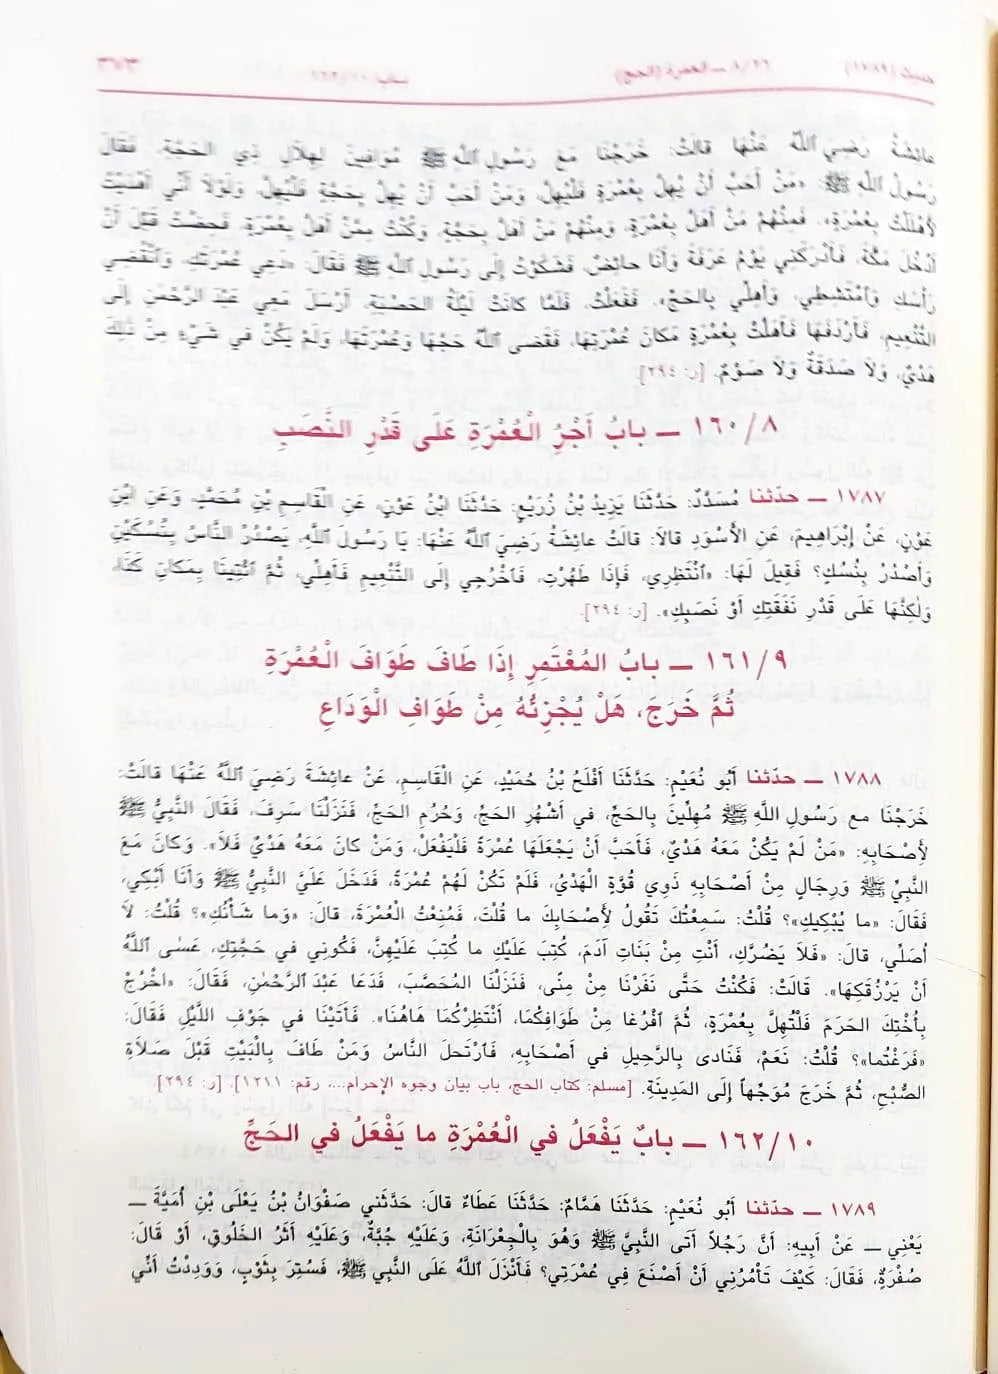 حديث (١٧٨٩) ٨/٢٦ ــ العمرة (الحج) باب ١٠/١٦٢ ٣٧٣
عائِشَةُ رَضِيَ ٱللَّهُ عَنْهَا قالَتْ: خَرَجْنَا مَعَ رَسُولِ ٱللَّهِ ﷺ مُوَافِينَ لِهِلَالِ ذِي الحَجَّةِ، فَقَالَ
رَسُولُ ٱللَّهِ ﷺ: «مَنْ أَحَبَّ أَنْ يُهِلَّ بِعُمْرَةٍ فَلْيُهِلَّ، وَمَنْ أَحَبَّ أَنْ يُهِلَّ بِحَجَّةٍ فَلْيُهِلَّ، وَلَوْلَا أَنِّي أَهْدَيْتُ
لَأَهْلَلْتُ بِعُمْرَةٍ». فَمِنْهُمْ مَنْ أَهَلَّ بِعُمْرَةٍ، وَمِنْهُمْ مَنْ أَهَلَّ بِحَجَّةٍ، وَكُنْتُ مِمَّنْ أَهَلَّ بِعُمْرَةٍ، فَحِضْتُ قَبْلَ أَنْ
أَدْخُلَ مَكَّةَ، فَأَدْرَكَنِي يَوْمُ عَرَفَةَ وَأَنا حائِضٌ، فَشَكَوْتُ إِلَى رَسُولِ ٱللَّهِ ﷺ فَقَالَ: «دَعِي عُمْرَتَكِ، وَٱنْقُضِي
رَأْسَكِ وَٱمْتَشِطِي، وَأَهِلِّي بِالحَجِّ». فَفَعَلْتُ، فَلَمَّا كانَتْ لَيْلَةُ الحَصْبَةِ، أَرْسَلَ مَعِي عَبْدَ الرَّحْمٰنِ إِلَى
التَّنْعِيمِ، فَأَرْدَفَهَا فَأَهَلَّتْ بِعُمْرَةٍ مَكانَ عُمْرَتِهَا، فَقَضى ٱللَّهُ حَجَّهَا وَعُمْرَتَهَا، وَلَمْ يَكُنْ في شَيْءٍ مِنْ ذٰلِكَ
هَدْيٌ، وَلَا صَدَقَةٌ وَلَا صَوْمٌ. [ر: ٢٩٤].
١٦٠/٨ ــ بابُ أَجْرُ الْعُمْرَةِ عَلَى قَدْرِ النَّصَبِ
١٧٨٧ ــ حدّثنا مُسَدَّدٌ: حَدَّثَنَا يَزِيدُ بْنُ زُرَيْعٍ: حَدَّثَنَا ابْنُ عَوْنٍ، عَنِ القَاسِمِ بْنِ مُحَمَّدٍ، وَعَنِ ابْنِ
عَوْنٍ، عَنْ إِبْرَاهِيمَ، عَنِ الأَسْوَدِ قالَا: قالَتْ عائِشَةُ رَضِيَ ٱللَّهُ عَنْهَا: يَا رَسُولَ ٱللَّهِ، يَصْدُرُ النَّاسُ بِنُسُكَيْنِ
وَأَصْدُرُ بِنُسُكٍ؟ فَقِيلَ لَهَا: «ٱنْتَظِرِي، فَإِذَا طَهُرْتِ، فَٱخْرُجِي إِلَى التَّنْعِيمِ فَأَهِلِّي، ثُمَّ ٱئْتِينَا بِمَكانِ كَذَا،
وَلٰكِنَّهَا عَلَى قَدْرِ نَفَقَتِكِ أَوْ نَصَبِكِ». [ر: ٢٩٤].
١٦١/٩ ــ بابُ المُعْتَمِرِ إِذَا طَافَ طَوَافَ الْعُمْرَةِ
ثُمَّ خَرَجَ، هَلْ يُجْزِئُهُ مِنْ طَوَافِ الْوَدَاعِ
١٧٨٨ ــ حدّثنا أَبُو نُعَيْمٍ: حَدَّثَنَا أَفْلَحُ بْنُ حُمَيْدٍ، عَنِ الْقَاسِمِ، عَنْ عائِشَةَ رَضِيَ ٱللَّهُ عَنْهَا قالَتْ:
خَرَجْنَا مع رَسُولِ اللَّهِ ﷺ مُهِلِّينَ بِالحَجِّ، في أَشْهُرِ الحَجِّ، وَحُرُمِ الحَجِّ، فَنَزَلْنَا سَرِفَ، فَقَالَ النَّبِيُّ ﷺ
لِأَصْحَابِهِ: «مَنْ لَمْ يَكُنْ مَعَهُ هَدْيٌ، فَأَحَبَّ أَنْ يَجْعَلَهَا عُمْرَةً فَلْيَفْعَلْ، وَمَنْ كانَ مَعَهُ هَدْيٌ فَلَا». وَكانَ مَعَ
النَّبِيِّ ﷺ وَرِجَالٍ مِنْ أَصْحَابِهِ ذَوِي قُوَّةٍ الْهَدْيُ، فَلَمْ تَكُنْ لَهُمْ عُمْرَةً، فَدَخَلَ عَلَيَّ النَّبِيُّ ﷺ وَأَنا أَبْكِي،
فَقَالَ: «ما يُبْكِيكِ»؟ قُلْتُ: سَمِعْتُكَ تَقُولُ لِأَصْحَابِكَ ما قُلْتَ، فَمُنِعْتُ الْعُمْرَةَ، قالَ: «وَما شَأْنُكِ»؟ قُلْتُ: لَا
أُصَلِّي، قالَ: «فَلَا يَضُرَّكِ، أَنْتِ مِنْ بَنَاتِ آدَمَ، كُتِبَ عَلَيْكِ ما كُتِبَ عَلَيْهِنَّ، فَكُونِي في حَجَّتِكِ، عَسٰى ٱللَّهُ
أَنْ يَرْزُقَكِهَا». قالَتْ: فَكُنْتُ حَتَّى نَفَرْنَا مِنْ مِنًى، فَنَزَلْنَا المُحَصَّبَ، فَدَعَا عَبْدَ الرَّحْمٰنِ، فَقَالَ: «اخْرُجْ
بِأُخْتِكَ الحَرَمَ فَلْتُهِلَّ بِعُمْرَةٍ، ثُمَّ افْرُغَا مِنْ طَوَافِكُمَا، أَنْتَظِرْكُمَا هَاهُنَا». فَأَتَيْنَا في جَوْفِ اللَّيْلِ فَقَالَ:
«فَرَغْتُما»؟ قُلْتُ: نَعَمْ، فَنَادَى بِالرَّحِيلِ في أَصْحَابِهِ، فَٱرْتَحَلَ النَّاسُ وَمَنْ طَافَ بِالْبَيْتِ قَبْلَ صَلَاةِ
الصُّبْحِ، ثُمَّ خَرَجَ مُوَجِّهاً إِلَى المَدِينَةِ. [مسلم: كتاب الحج، باب بيان وجوه الإحرام...، رقم: ١٢١١]. [ر: ٢٩٤].
١٦٢/١٠ ــ بابٌ يَفْعَلُ في الْعُمْرَةِ ما يَفْعَلُ في الحَجِّ
١٧٨٩ ــ حدّثنا أَبُو نُعَيْمٍ: حَدَّثَنَا هَمَّامٌ: حَدَّثَنَا عَطَاءٌ قالَ: حَدَّثَنِي صَفْوَانُ بْنُ يَعْلَى بْنِ أُمَيَّةَ ــ
يَعْنِي ــ عَنْ أَبِيهِ: أَنَّ رَجُلاً أَتَى النَّبِيَّ ﷺ وَهُوَ بِالْجِعْرَانَةِ، وَعَلَيْهِ جُبَّةٌ، وَعَلَيْهِ أَثَرُ الخَلُوقِ، أَوْ قالَ:
صُفْرَةٍ، فَقَالَ: كَيْفَ تَأْمُرُنِي أَنْ أَصْنَعَ فِي عُمْرَتِي؟ فَأَنْزَلَ اللَّهُ عَلَى النَّبِيِّ ﷺ، فَسُتِرَ بِثَوْبٍ، وَوَدِدْتُ أَنِّي